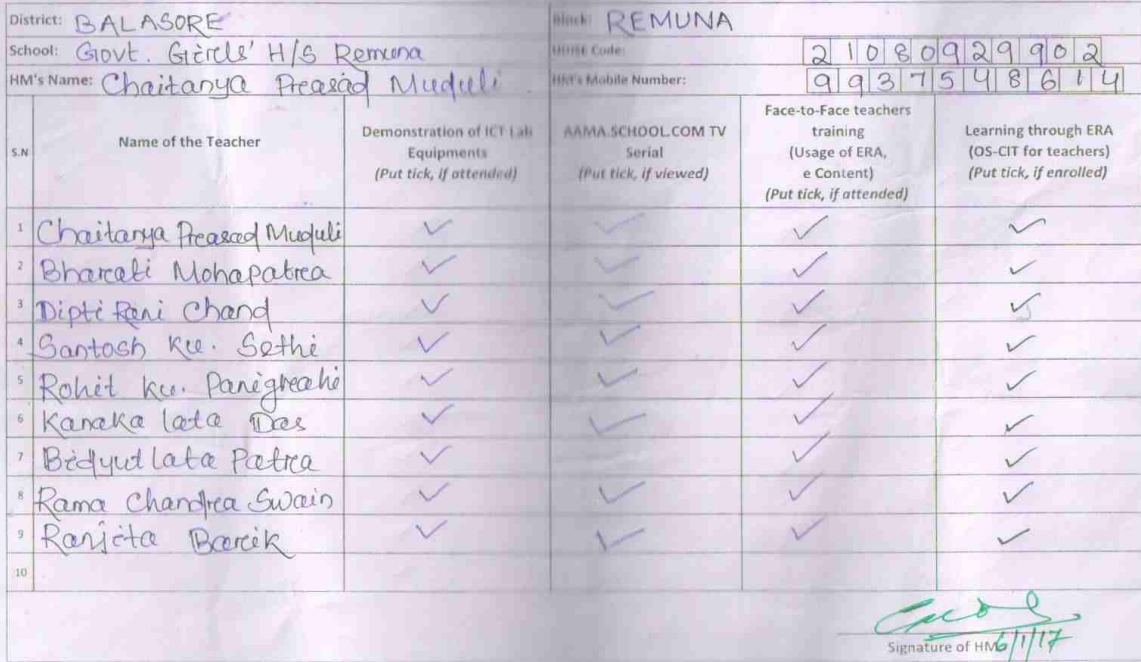 District: BALASORE Block: REMUNA
School: Govt. Girls' H/S Remuna UDISE Code: 21080929902
HM's Name: Chaitanya Preasad Muduli HM's Mobile Number: 9937548614
S.N Name of the Teacher Demonstration of ICT Lab Equipments (Put tick, if attended) AAMA.SCHOOL.COM TV Serial (Put tick, if viewed) Face-to-Face teachers training (Usage of ERA, e Content) (Put tick, if attended) Learning through ERA (OS-CIT for teachers) (Put tick, if enrolled)
1 Chaitanya Preasad Muduli ✓ ✓ ✓ ✓
2 Bharcati Mohapatrea ✓ ✓ ✓ ✓
3 Dipti Rani Chand ✓ ✓ ✓ ✓
4 Santosh Ku. Sethi ✓ ✓ ✓ ✓
5 Rohit Ku. Panigreahi ✓ ✓ ✓ ✓
6 Kanaka lata Das ✓ ✓ ✓ ✓
7 Bidyut lata Patrea ✓ ✓ ✓ ✓
8 Rama Chandrea Swain ✓ ✓ ✓ ✓
9 Ranjita Barcik ✓ ✓ ✓ ✓
10
Signature of HM 6/1/17